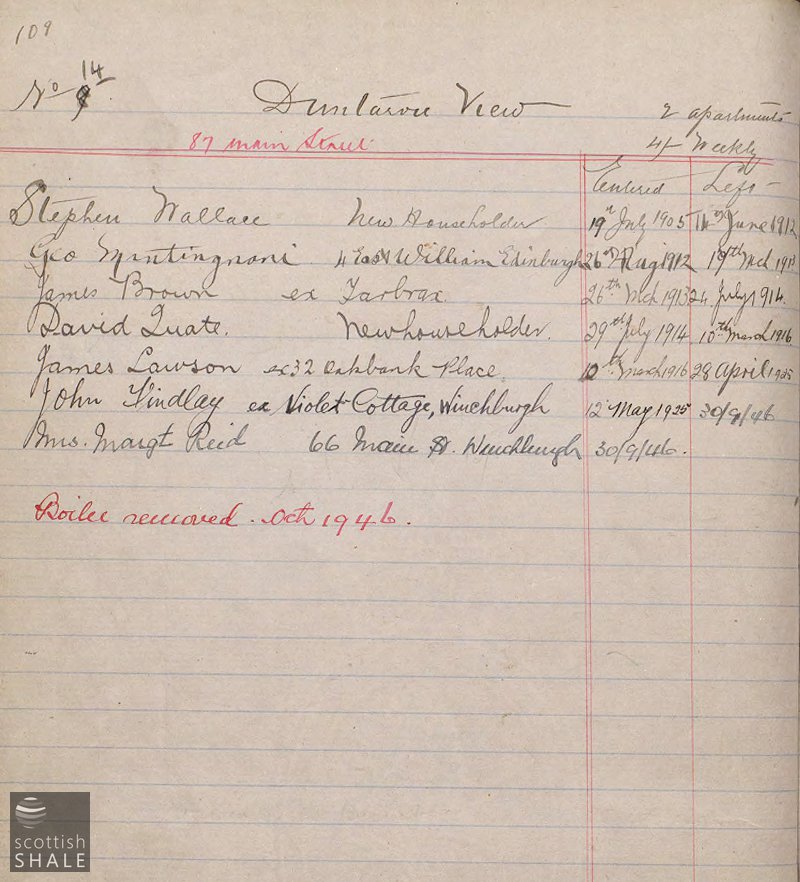 109
No 14
Duntarvie View
2 apartments
87 Main Street
4/- Weekly
Entered Left
Stephen Wallace New Householder 19th July 1905 14th June 1912
Geo 4 East William Edinburgh 26th Aug 1912 19th Mch 1913
James Brown ex Tarbrax. 26th Mch 1913 24 July 1914.
David Quate. Newhouseholder. 29th July 1914 10th March 1916
James Lawson ex 32 Oakbank Place. 10th March 1916 28 April 1925
John Findlay ex Violet Cottage, Winchburgh 12 May 1925 30/9/46
Mrs. Margt Reid 66 Main St. Winchburgh 30/9/46.
Boiler removed. Oct 1946.
scottish
SHALE